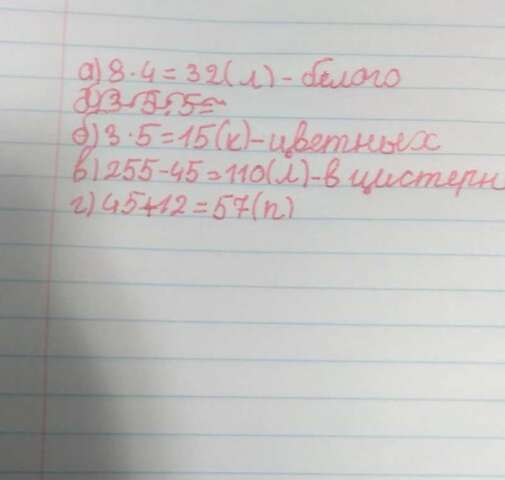 а) 8·4=32(л)-белого
б) 3·5·5=
б) 3·5=15(к)-цветных
в) 255-45=110(л)-в цистерн
г) 45+12=57(п)